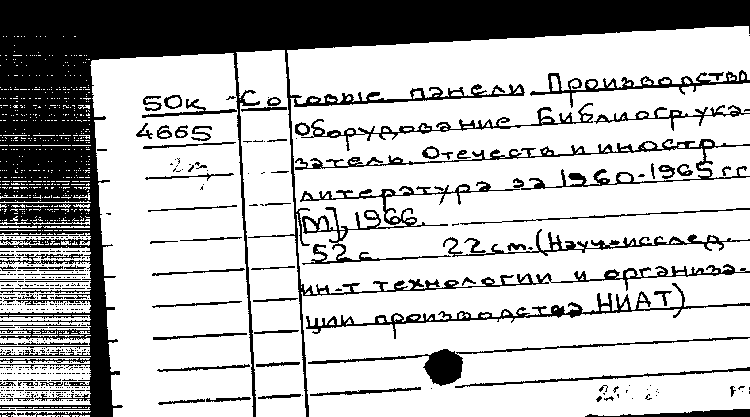 50к Сотовые панели. Производство
4665 Оборудование. Библиогр. ука-
затель. Отечеств и иностр.
литература за 1960-1965 гг
[М.], 1966.
52 с 22 см. (Науч-исслед.
ин-т технологии и организа-
ции производства НИАТ)